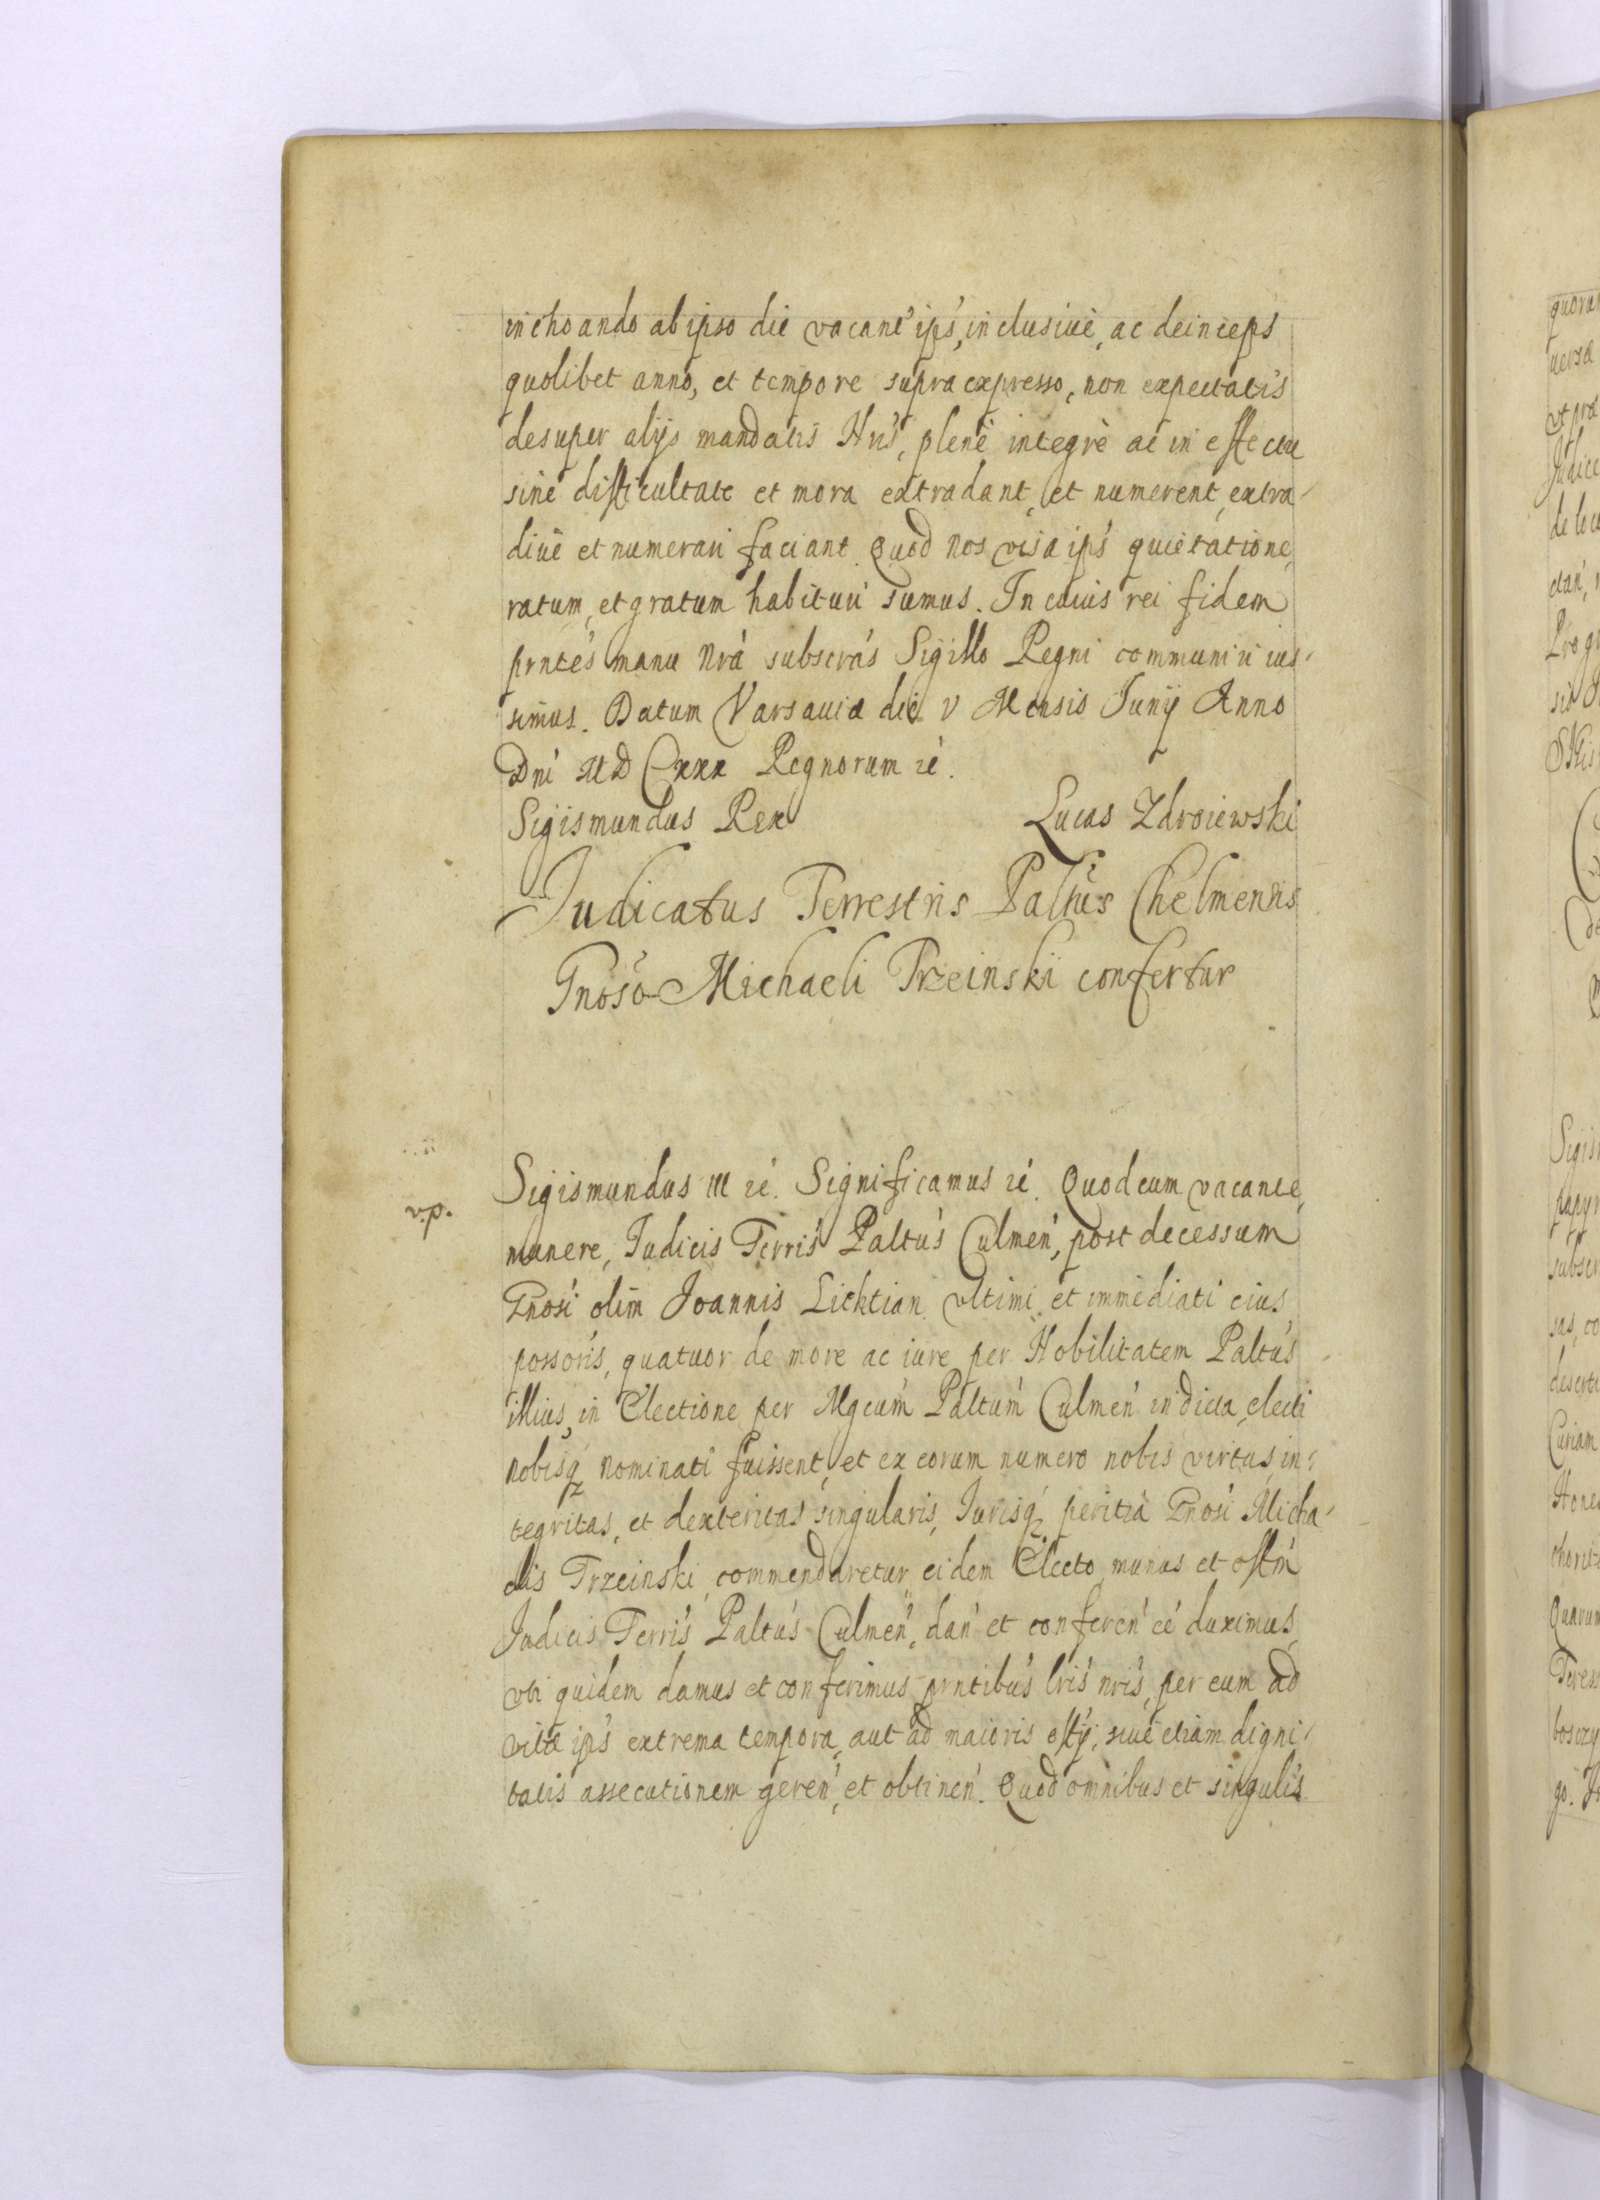 inchoando ab ipso die vacane' ips', inclusiuè, ac deinceps
quolibet anno, et tempore supra expresso, non expectatis
desuper alijs mandatis Nris, plenè integrè ac in effectu
sine difficultate et mora extradant, et numerent, extra-
diuè et numerari faciant. Quod nos visa ips' quietatione,
ratum, et gratum habituri sumus. In cuius rei fidem
prntes manu Nrà subscras Sigillo Regni communiri ius-
simus. Datum Varsauiæ die V Mensis Junij Anno
Dni MDCxxx Regnorum rc.
Sigismundus Rex Lucas Zdroiewski
Judicatus Terrestris Paltus Chelmensis
Gnoso Michaeli Trzeinski confertur
Sigismundus III rc. Significamus rc. Quod cum vacante,
v.p.
munere, Judicis Terris' Paltus' Culmen', post decessum
Gnosi olim Joannis Licktian ultimi et immediati eius
possoris, quatuor de more ac iure per Nobilitatem Paltus
illius, in Electione per Mgcum Paltum Culmen' indicta, electi
nobisq nominati fuissent, et ex eorum numero nobis virtus, in-
tegritas, et dexteritas singularis, Jurisq peritia Gnosi Micha-
elis Trzeinski, commendaretur, eidem Electo, munus et offm
Judicis Terris' Paltus' Culmen', dan' et conferen' ee' duximus,
vti quidem damus et conferimus, prntibus lris nris, per eum ad
vitæ ips' extrema tempora, aut ad maioris offij, siue etiam digni-
tatis assecutionem geren', et obtinen'. Quod omnibus et singulis